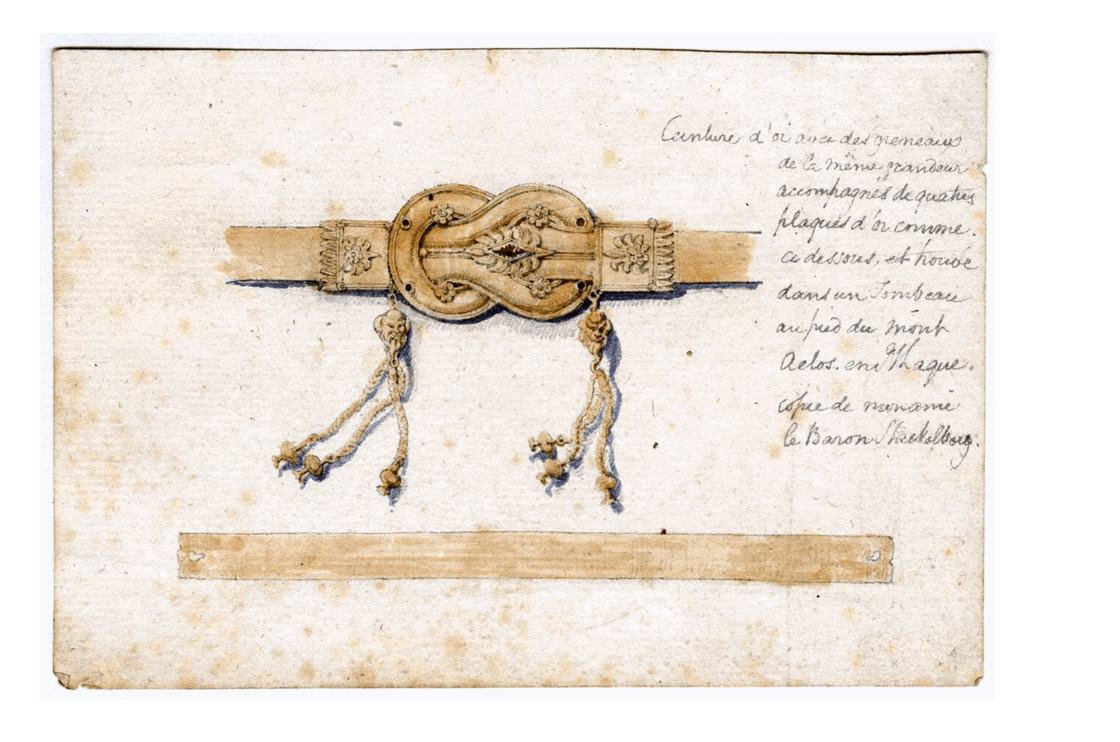 Ceinture d'or avec des greneaux
de la même grandeur
accompagnés de quatres
plaques d'or comme.
ci dessous, et trouvé
dans un Tombeau
au pied du mont
Aelos. en Ithaque.
copie de mon ami
le Baron Stackelberg.